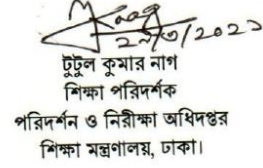 টুটুল কুমার নাগ
শিক্ষা পরিদর্শক
পরিদর্শন ও নিরীক্ষা অধিদপ্তর
শিক্ষা মন্ত্রণালয়, ঢাকা।